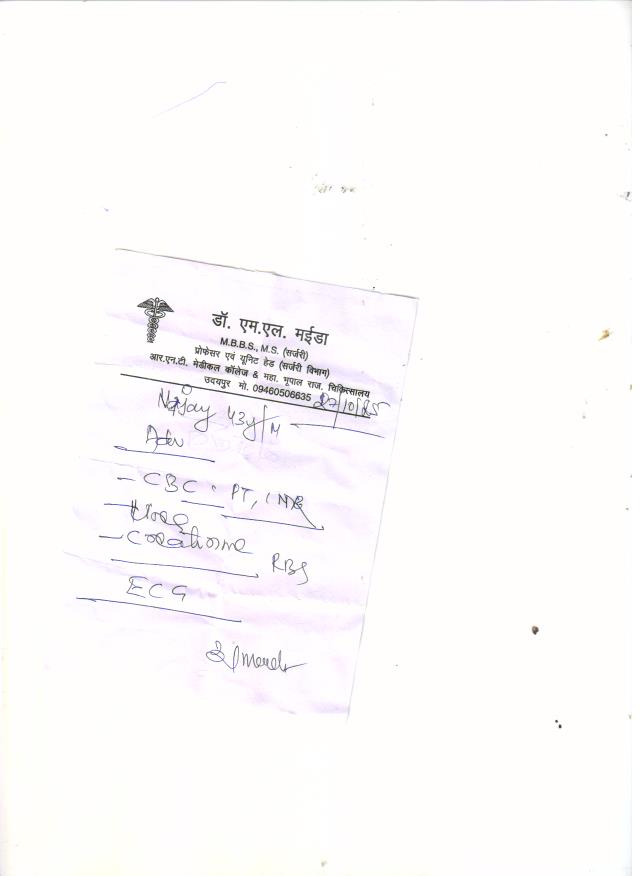 डॉ. एम.एल. मईडा
M.B.B.S., M.S. (सर्जरी)
प्रोफेसर एवं यूनिट हेड (सर्जरी विभाग)
आर.एन.टी. मेडीकल कॉलेज & महा. भूपाल राज. चिकित्सालय
उदयपुर मो. 09460506635 27/10/25
43y/M
Adv
- CBC, PT, INR
- RBS
ECG